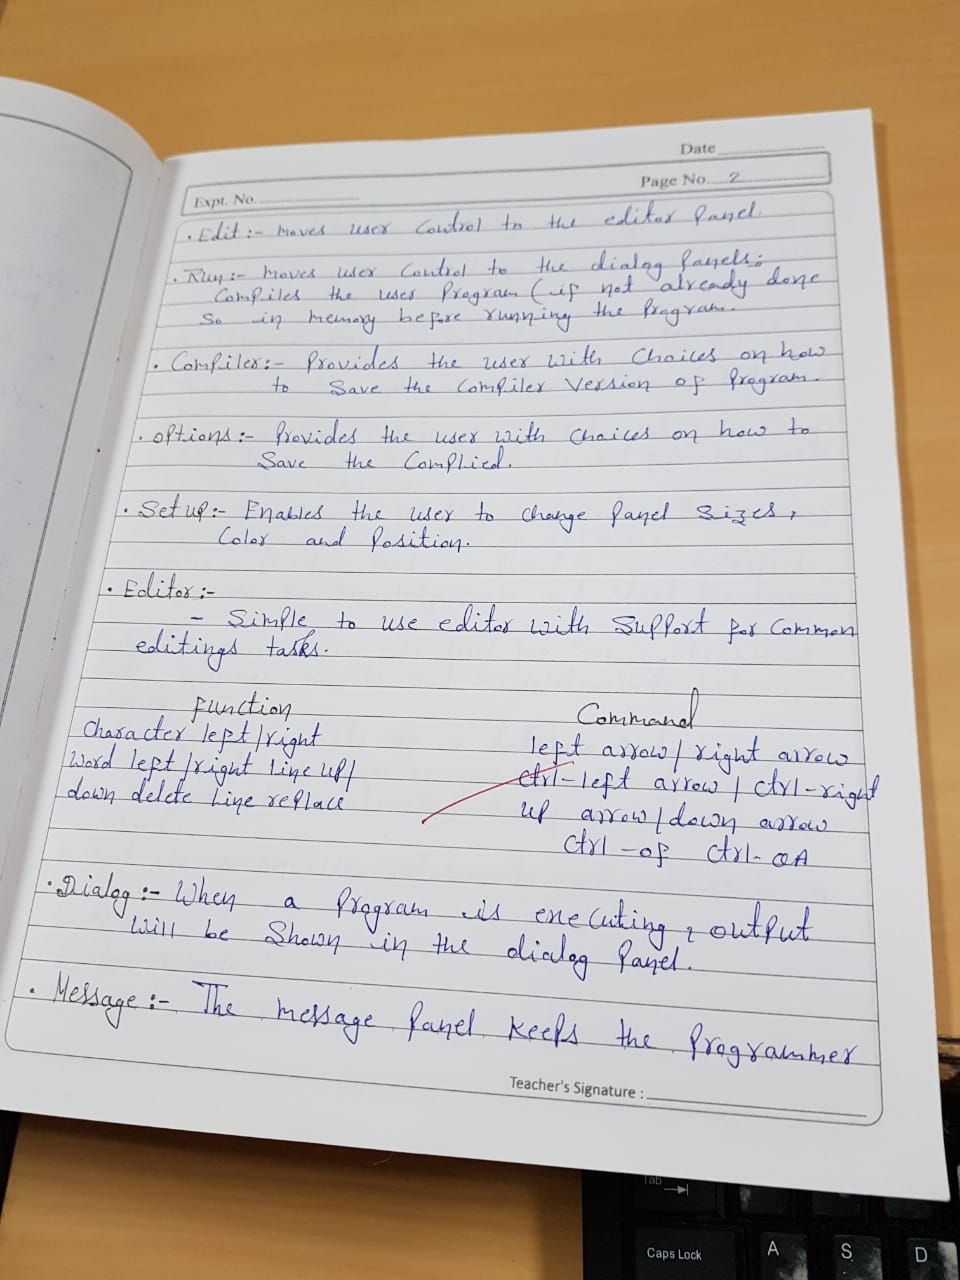 Date
Page No. 2
Expt. No.
• Edit :- moves user Control to the editor Panel.
• Run :- moves user Control to the dialog Panels;
Compiles the user Program (if not already done
So in memory before running the Program.
• Compiler:- Provides the user with Choices on how
to Save the Compiler Version of Program.
• options:- Provides the user with Choices on how to
Save the Complied.
• Set up:- Enables the user to change Panel Sizes,
Color and Position.
• Editor:-
- Simple to use editor with Support for Common
editings tasks.
function Command
Character left/right left arrow/right arrow
Word left/right Line up/ ctrl-left arrow/ctrl-right
down delete Line replace up arrow/down arrow
Ctrl-of Ctrl-QA
• Dialog:- When a Program is executing, output
Will be Shown in the dialog Panel.
• Message:- The message Panel Keeps the Programmer
Teacher's Signature :
Tab
Caps Lock A S D